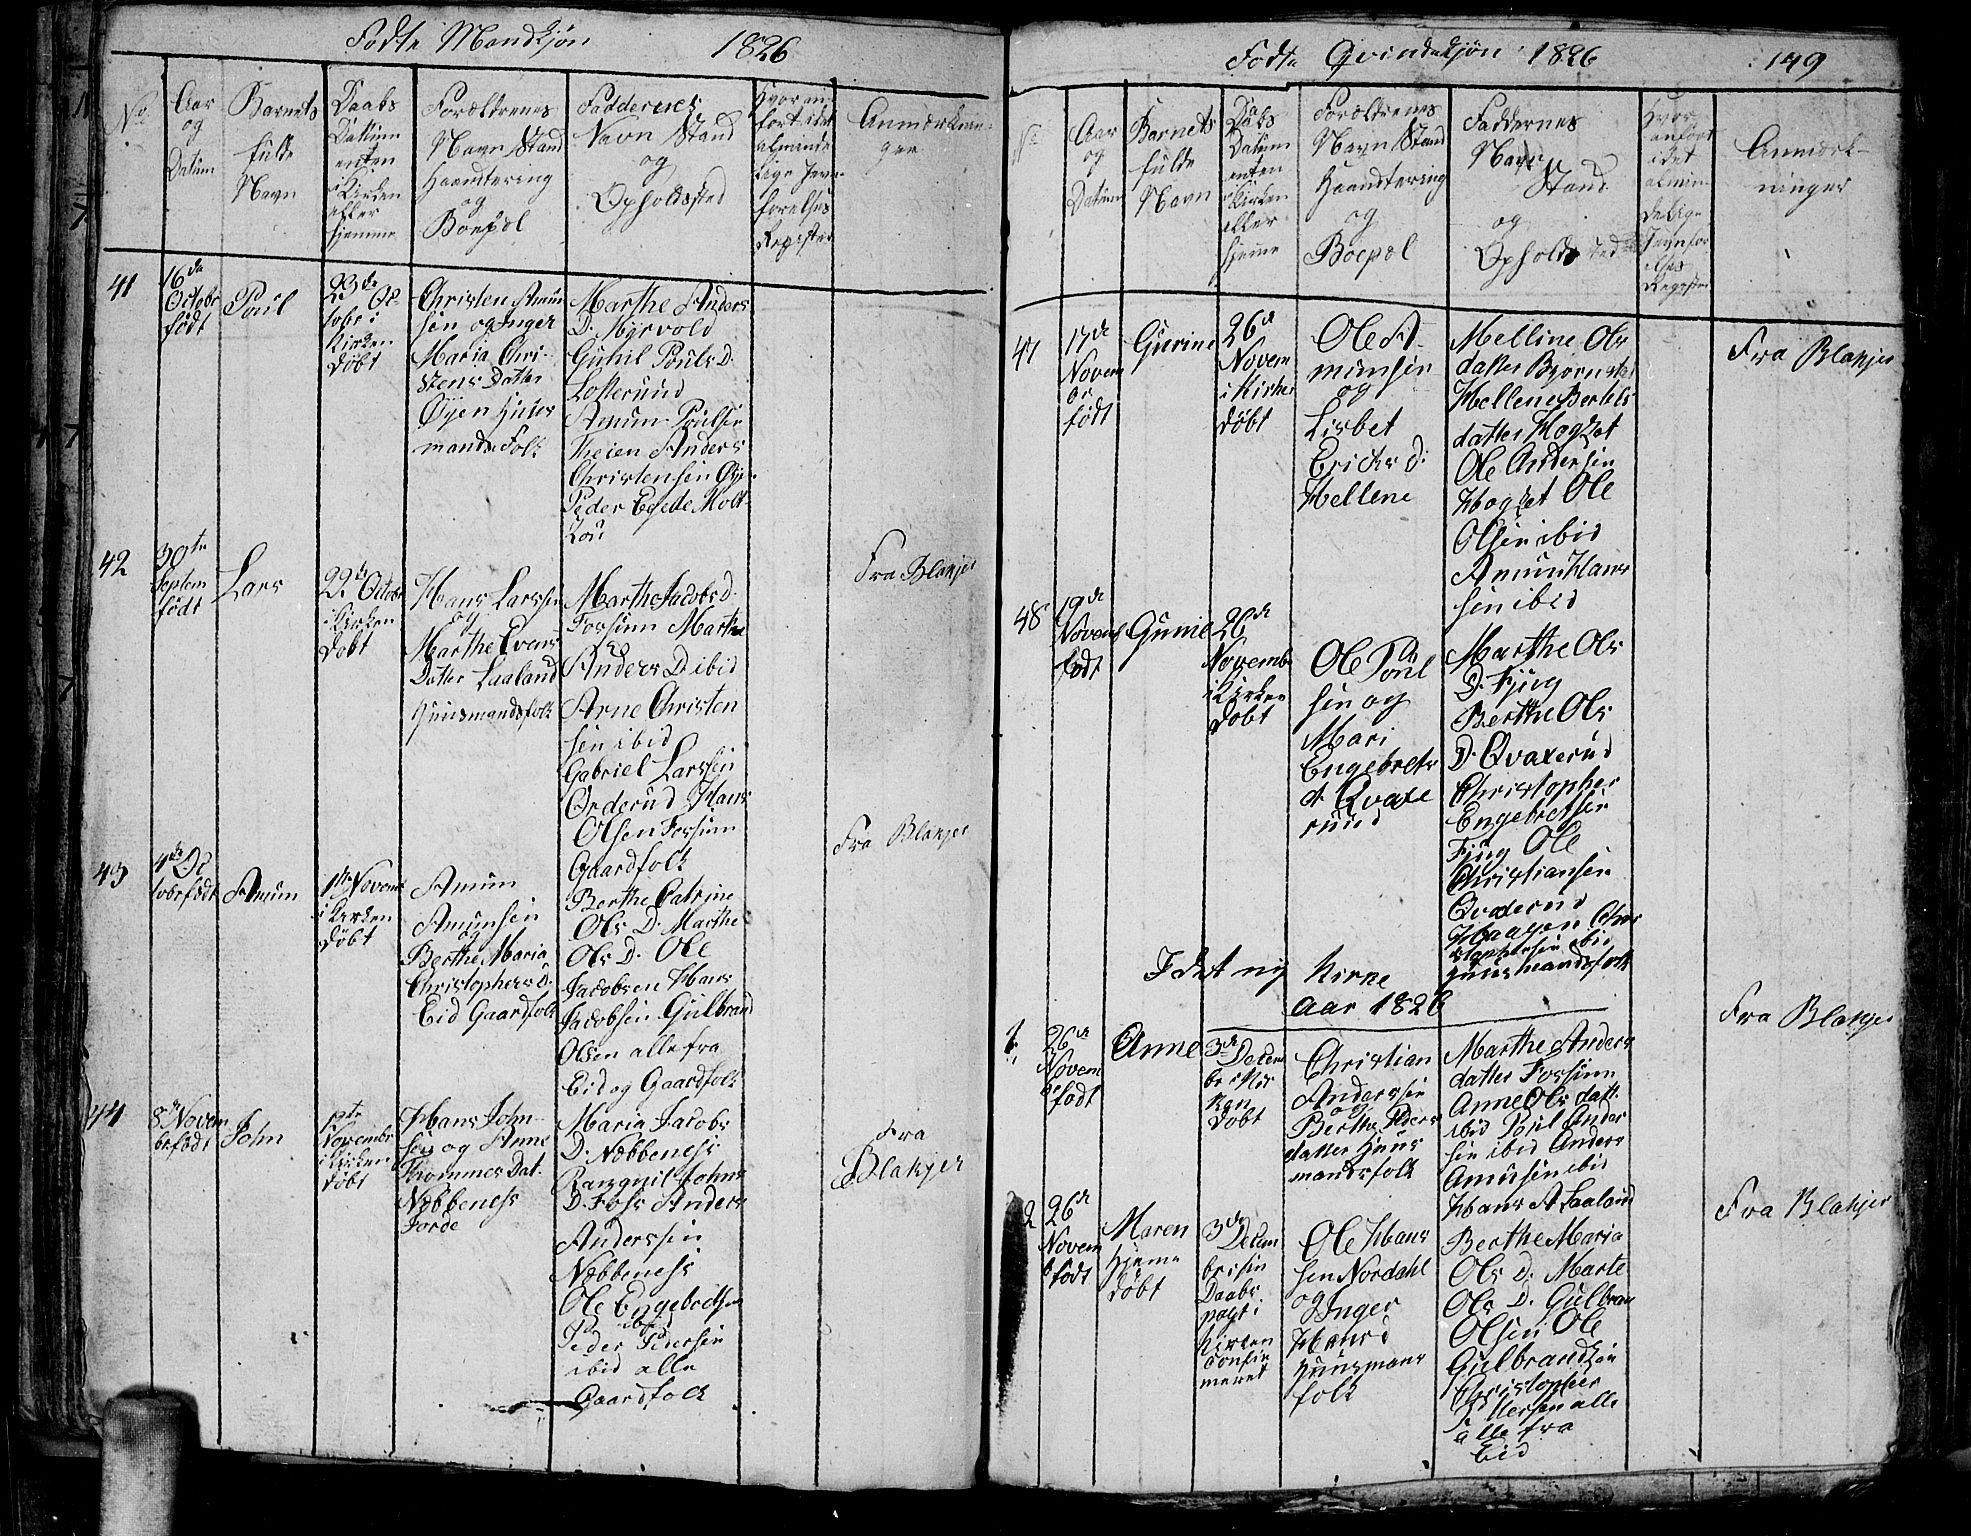 Fødte Mandkjøn 1826
No
Aar
og
Datum
Barnets
fulde
Navn
Daabs
Datum
enten
i Kirken
eller
hjemme
Forældrenes
Navn Stand
Haandtering
og
Boepæl
Faddernes
Navn Stand
og
Opholdssted
Hvor an-
ført i det
alminde
lige Jevn-
førelses
Register
Anmærknin-
ger
41
16de
Octobr
født
Poul
23de Oc
tobr i
Kirken
døbt
Christen Amun
sen og Inger
Maria Chri-
stens Datter
Øyen Huus
mands Folk
Marthe Anders
D. Myrvold
Gunil Pouls D.
Lofterud
Amun Poulsen
Theien Anders
Christensen Øye
Peder Egede Molt
zou
42
30te
Septem
født
Lars
22de Octobr
i Kirken
døbt
Hans Larssen
og
Marthe Evens
Datter Laaland
Huusmandsfolk
Marthe Jacobs D.
Fossum Marthe
Anders D ibid
Arne Christen
sen ibid
Gabriel Larssen
Orderud Hans
Olsen Fossum
Gaardfolk
Fra Blakjer
43
4de Oc
tobr født
Amum
1te Novem
i Kirken
døbt
Amum
Amumsen
og
Berthe Maria
Christophers D.
Eid Gaardfolk
Berthe Catrine
Ols D. Marthe
Ols D. Ole
Jacobsen Hans
Jacobsen Gulbrand
Olsen alle fra
Eid og Gaardfolk
Fra Blakjer
44
8de Novem
br født
John
12te
Novembr
i Kirken
døbt
Hans John-
sen og Anne
Thommes Dat.
Næbbeness
Forde
Maria Jacobs
D. Næbbeness
Rangnil Johns
D. Foss Anders
Anderssen
Næbbeness
Ole Engebretsen
ibid
Peder Pedersen
ibid alle
Gaardfolk
Fra
Blakjer
Fødte Qvindekjøn 1826 149
No
Aar
og
Datum
Barnets
fulde
Navn
Daabs
Datum
enten
i Kirken
eller
hjeme
Forældrenes
Navn Stand
Haandtering
og
Boepæl
Faddernes
Navn
Stand
og
Opholdssted
Hvor
anført
i det
almin-
delige
Jevnfør
elses
Register
Anmærk-
ninger
47
17de
Novem
br
født
Gurine
26de
Novem
i Kirken
døbt
Ole A-
mumsen
og
Lisbet
Erichs D.
Hellene
Melline Ols
datter Bjørnsta
Hellene Bertels
datter Hogset
Ole Andersen
Hogset Ole
Olsen ibid
Amun Hans
sen ibid
Fra Blakjer
48
19de
Novemb
født
Gunil
26de
Novemb
i Kirken
døbt
Ole Poul
sen og
Mari
Engebrets
d. Qvaxe
ruud
Marthe Ols
D. Fjug
Berthe Ols
D. Qvaxerud
Christopher
Engebretsen
Fjug Ole
Christiansen
Qvaxerud
Haagen Chri
stophersen ibid
Huusmandsfolk
I det ny Kirke
Aar 1826
1
26de
Novem
br
født
Anne
3de
Decem
br i Kir
ken
døbt
Christian
Anderssen
og
Berthe Peders
datter Huus
mandsfolk
Marthe Anders
datter Fossum
Anne Ols datt.
ibid Poul Ander
sen ibid Anders
Amunsen ibid
Hans A Laaland
Fra Blakjer
2
26de
Novem
br
født
Maren
hjeme
døbt
3de
Decem
br sin
Daabs
pagt i
Kirken
confir
meret
Ole Hans
sen Nordahl
og Inger
Hans d
Huusmans
folk
Berthe Maria
Ols D. Marte
Ols D. Gulbran
Olsen Ole
Gulbrandsen
Christopher
Pettersen alle
alle fra
Eid
Fra Blakjer